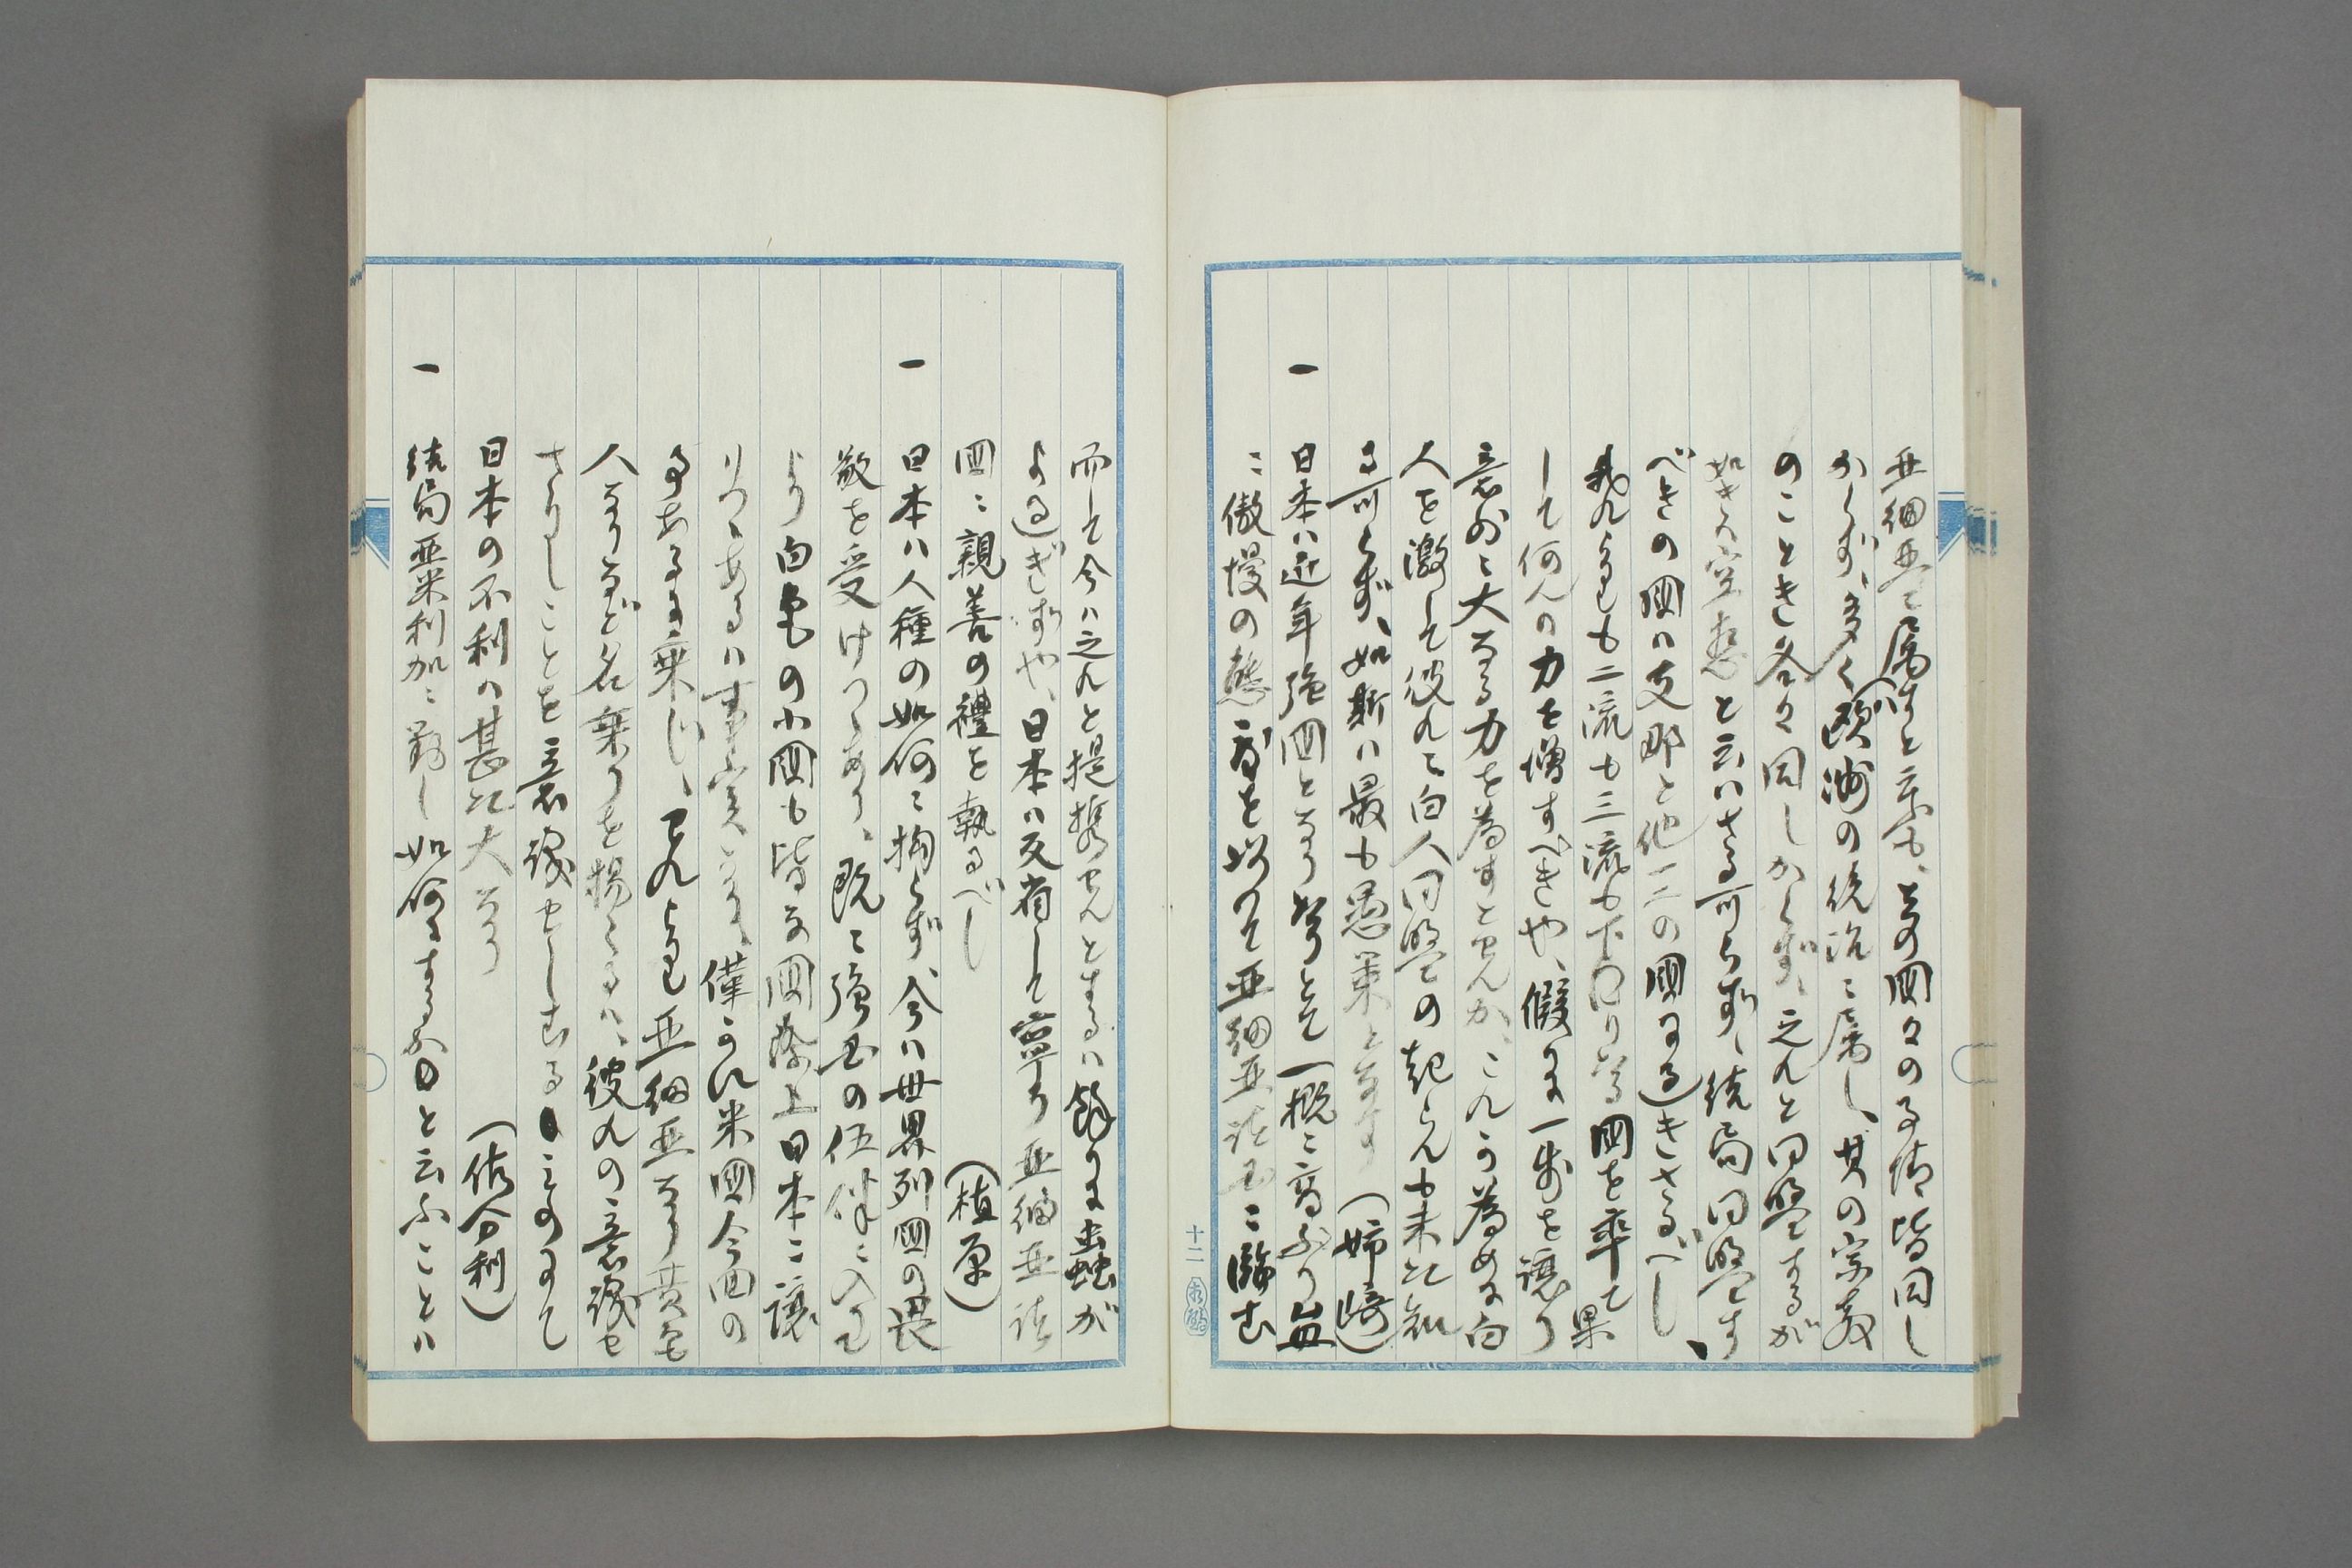 亜細亜ニ属すと雖も、其の国々の事情皆同し
からず、多くハ欧洲の統治ニ属し、其の宗教
のことき各々同しからず、之れと同盟するが
如きハ空想と云ハさる可らず、結局同盟す
べきの国ハ支那と他一二の国に過きさるべし、
我れよりも二流も三流も下りたる国を率て果
して何んの力を増すべきや、假りに一歩を譲り
意外ニ大なる力を為すとせんか、これか為めに白
人を激して彼れニ白人同盟の起らんも未た知
る可らず、如斯ハ最も愚策となす　（姉崎）
一　日本ハ近年強国となり居りとて一概ニ高ぶり益
ニ傲慢の態度を以つて亜細亜諸国ニ臨む
十二
而して今ハ之れと提携せんとするハ餘りに蟲が
よ過ぎずや、日本ハ反省して寧ろ亜細亜諸
国ニ親善の禮を執るべし　（植原）
一　日本ハ人種の如何ニ拘らず、今ハ世界列国の畏
敬を受けつゝあり、既ニ強国の伍伴ニ入りて
より白色の小国も皆な国際上日本ニ譲
りつゝあるハ事実なり、僅かに米国今回の
事あるに乗じ、われよりも亜細亜なり黄色
人なりなど名乗りを揚くるハ、彼れの意識せ
さりしことを意識せしむるものにて
日本の不利ハ甚た大なり　（佐分利）
一　結局亜米利加ニ對し如何にするかと云ふことハ